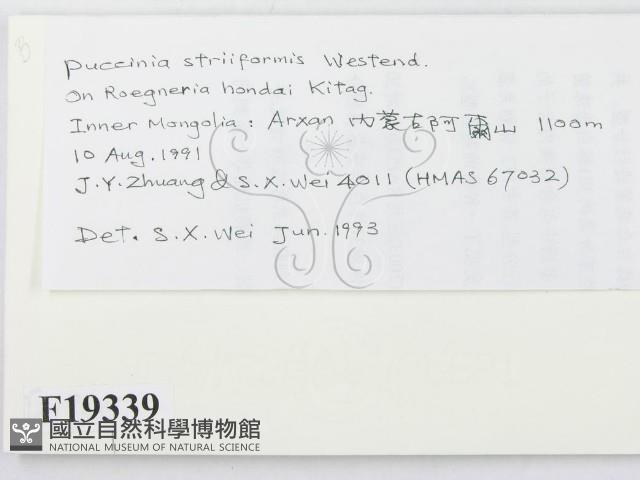 Puccinia striiformis Westend.
On Roegneria hondai Kitag.
Inner Mongolia: Arxan 內蒙古阿爾山 1100m
10 Aug. 1991
J.Y. Zhuang & S.X. Wei 4011 (HMAS 67032)
Det. S.X. Wei Jun. 1993
F19339
國立自然科學博物館
NATIONAL MUSEUM OF NATURAL SCIENCE